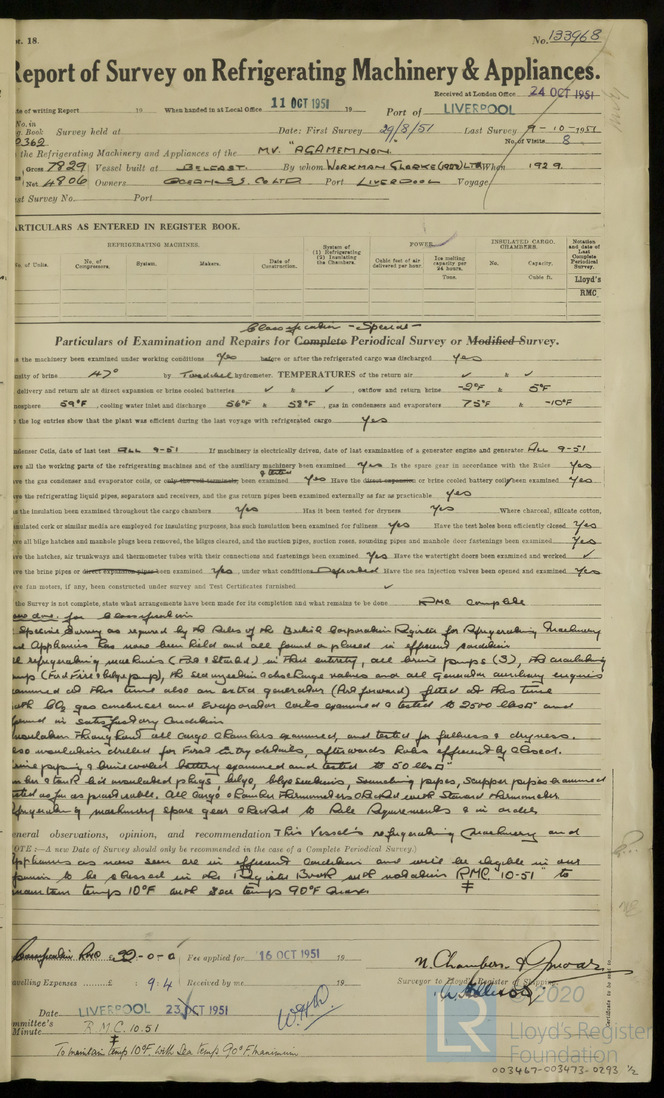 pt. 18.
No. 133968
Report of Survey on Refrigerating Machinery & Appliances.
Received at London Office 24 OCT 1951
te of writing Report 19 When handed in at Local Office 11 OCT 1951 19 Port of LIVERPOOL
No. in
g. Book Survey held at Date: First Survey 29/8/51 Last Survey 9-10-1951
2362 No. of Visits 8
the Refrigerating Machinery and Appliances of the M.V. "AGAMEMNON.
Gross 7829 Vessel built at BELFAST. By whom WORKMAN CLARKE (1928) LTD When 1929.
Net 4806 Owners OCEAN S.S. CO LTD Port LIVERPOOL Voyage
st Survey No. Port
ARTICULARS AS ENTERED IN REGISTER BOOK.
REFRIGERATING MACHINES. System of (1) Refrigerating (2) Insulating the Chambers. POWER. INSULATED CARGO CHAMBERS. Notation and date of Last Complete Periodical Survey.
No. of Units. No. of Compressors. System. Makers. Date of Construction. Cubic feet of air delivered per hour. Ice melting capacity per 24 hours. No. Capacity.
Tons. Cubic ft. Lloyd's
RMC
Classification - Special -
Particulars of Examination and Repairs for Complete Periodical Survey or Modified Survey.
s the machinery been examined under working conditions Yes before or after the refrigerated cargo was discharged Yes
nsity of brine 47° by Twaddel hydrometer. TEMPERATURES of the return air ✓ & ✓
delivery and return air at direct expansion or brine cooled batteries ✓ & ✓, outflow and return brine -2°F & 5°F
mosphere 59°F, cooling water inlet and discharge 56°F & 58°F, gas in condensers and evaporators 75°F & -10°F
the log entries show that the plant was efficient during the last voyage with refrigerated cargo Yes
ndenser Coils, date of last test ALL 9-51 If machinery is electrically driven, date of last examination of generator engine and generator ALL 9-51
ave all the working parts of the refrigerating machines and of the auxiliary machinery been examined Yes Is the spare gear in accordance with the Rules Yes
& tested
ave the gas condenser and evaporator coils, or only the coil terminals, been examined Yes Have the direct expansion or brine cooled battery coils been examined Yes
ave the refrigerating liquid pipes, separators and receivers, and the gas return pipes been examined externally as far as practicable Yes
as the insulation been examined throughout the cargo chambers Yes Has it been tested for dryness Yes Where charcoal, silicate cotton,
nulated cork or similar media are employed for insulating purposes, has such insulation been examined for fullness Yes Have the test holes been efficiently closed Yes
ave all bilge hatches and manhole plugs been removed, the bilges cleared, and the suction pipes, suction roses, sounding pipes and manhole door fastenings been examined Yes
ave the hatches, air trunkways and thermometer tubes with their connections and fastenings been examined Yes Have the watertight doors been examined and worked ✓
ave the brine pipes or direct expansion pipes been examined Yes, under what condition Defrosted Have the sea injection valves been opened and examined Yes
ave fan motors, if any, been constructed under survey and Test Certificates furnished ✓
the Survey is not complete, state what arrangements have been made for its completion and what remains to be done RMC Complete
now done for Classification
Special Survey as required by the Rules of the British Corporation Register for Refrigerating Machinery
nd Appliances has now been held and all found or placed in efficient condition
refrigerating machines (Port & Starbd) in their entirety, all brine pumps (3), the circulating
ump (Fwd Fire & bilge pump), the sea injection & discharge valves and all generator auxiliary engines
examined at this time also an extra generator (Port forward) fitted at this time
gas condenser and Evaporator coils examined & tested to 2500 lbs □" and
found in satisfactory condition
Insulation throughout all cargo chambers examined, and tested for fullness & dryness.
Also insulation drilled for afterwards holes efficiently closed.
brine piping & brine cooled battery examined and tested to 50 lbs □"
insulated plugs, bilge, bilge suctions, sounding pipes, scupper pipes examined
tested as far as practicable. All cargo chamber thermometers checked with Standard thermometer
Refrigerating machinery spare gear checked to Rule Requirements & in order
neral observations, opinion, and recommendation This Vessel's refrigerating machinery and
OTE:—A new Date of Survey should only be recommended in the case of a Complete Periodical Survey.)
Appliances as now seen are in efficient condition and will be eligible in our
opinion to be classed in the Register Book with notation "RMC. 10-51" to
maintain temp 10°F with sea temp 90°F max
Classification RMC £ 99-0-0 Fee applied for 16 OCT 1951 19
avelling Expenses £ : 9:4 Received by me 19
N. Chambers &
Surveyor to Lloyd's Register of Shipping
Date LIVERPOOL 23 OCT 1951
mmittee's
Minute R.M.C. 10.51
To maintain temp 10°F. with Sea temp 90°F. maximum
Certificate to be sent to
© 2020
LR
Lloyd's Register
Foundation
003467-003473-0293 1/2